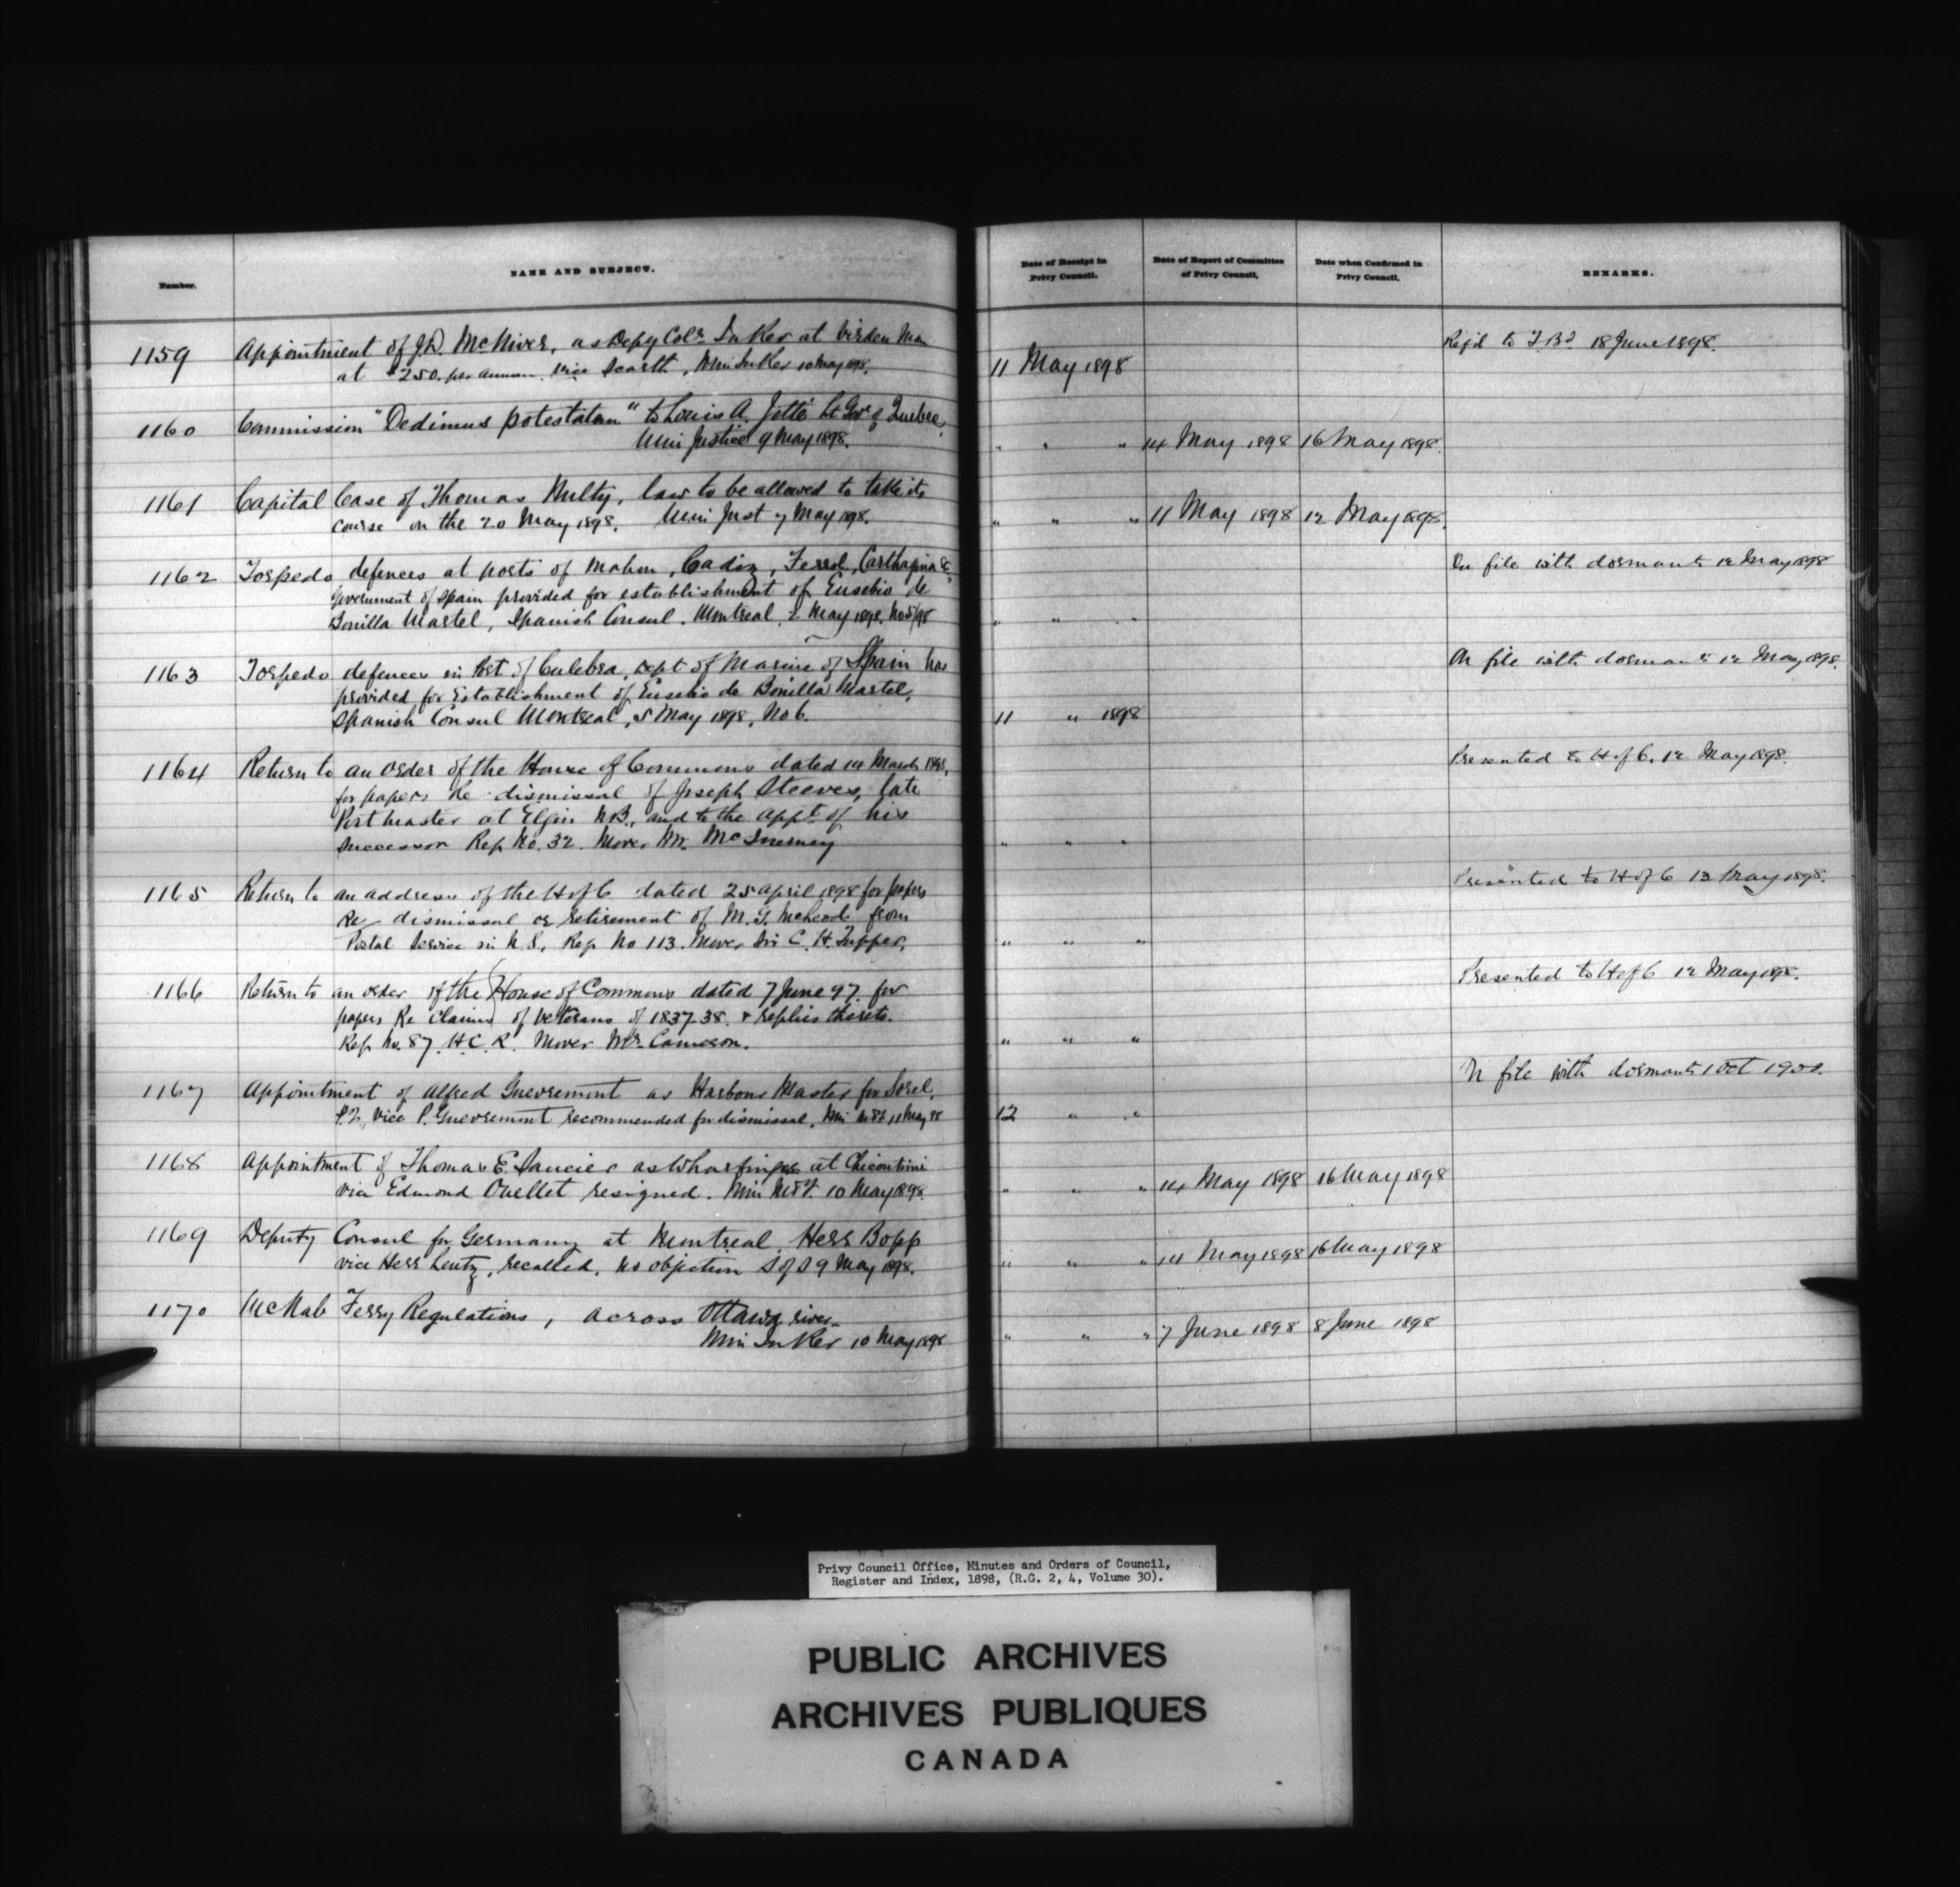 Number.
NAME AND SUBJECT.
Date of Receipt in Privy Council.
Date of Report of Committee of Privy Council.
Date when Confirmed in Privy Council.
REMARKS.
1159 Appointment of J.D. McNiver, as Depy Colr In Rev at Virden Man
at $250. per annum. vice Scarth, Min In Rev 10 May 1898.
11 May 1898
Ref'd to T.Bd 18 June 1898.
1160 Commission "Dedimus potestatem" to Louis A. Jetté Lt Govr of Quebec,
Min Justice 9 May 1898.
" " " 14 May 1898 16 May 1898.
1161 Capital Case of Thomas Nulty, law to be allowed to take its
course on the 20 May 1898. Min Just 7 May 1898.
" " " 11 May 1898 12 May 1898.
1162 Torpedo defences at ports of Mahon, Cadiz, Ferrol, Carthagina &c,
Government of Spain provided for establishment of Eusebio de
Bonilla Martel, Spanish Consul. Montreal, 2 May 1898. No 5/98
" " "
On file with dormants 12 May 1898
1163 Torpedo defences in Port of Culebra, Dept of Marine of Spain has
provided for Establishment of Eusebio de Bonilla Martel,
Spanish Consul Montreal, 5 May 1898, No 6.
11 " 1898
On file with dormants 12 May 1898.
1164 Return to an order of the House of Commons dated 14 March 1898,
for papers Re dismissal of Joseph Steeves, late
Postmaster at Elgin N.B., and to the appt of his
successor Rep No. 32. Mover Mr. McInerney
" " "
Presented to H of C. 12 May 1898.
1165 Return to an address of the H of C dated 25 April 1898 for papers
Re dismissal or retirement of M. G. McLeod from
Postal Service in N.S., Rep No 113. Mover Sir C. H. Tupper.
" " "
Presented to H of C 13 May 1898.
1166 Return to an order of the House of Commons dated 7 June 97. for
papers Re claims of Veterans of 1837-38. & replies thereto.
Rep No. 87. H.C.R. Mover Mr. Cameron.
" " "
Presented to H of C 12 May 1898.
1167 Appointment of Alfred Guevremont as Harbour Master for Sorel,
P.Q., vice P. Guevremont recommended for dismissal. Min M&F 11 May 98
12 " "
On file with dormants 1 Oct 1900.
1168 Appointment of Thomas E. Saucier as Wharfinger at Chicoutimi
vice Edmond Ouellet resigned. Min M&F. 10 May 1898.
" " " 14 May 1898 16 May 1898
1169 Deputy Consul for Germany at Montreal, Herr Bopp
vice Herr Lentz, recalled. No objection S of S 9 May 1898.
" " " 14 May 1898 16 May 1898
1170 McNab Ferry Regulations, across Ottawa river.
Min In Rev 10 May 1898
" " " 7 June 1898 8 June 1898
Privy Council Office, Minutes and Orders of Council,
Register and Index, 1898, (R.G. 2, 4, Volume 30).
PUBLIC ARCHIVES
ARCHIVES PUBLIQUES
CANADA